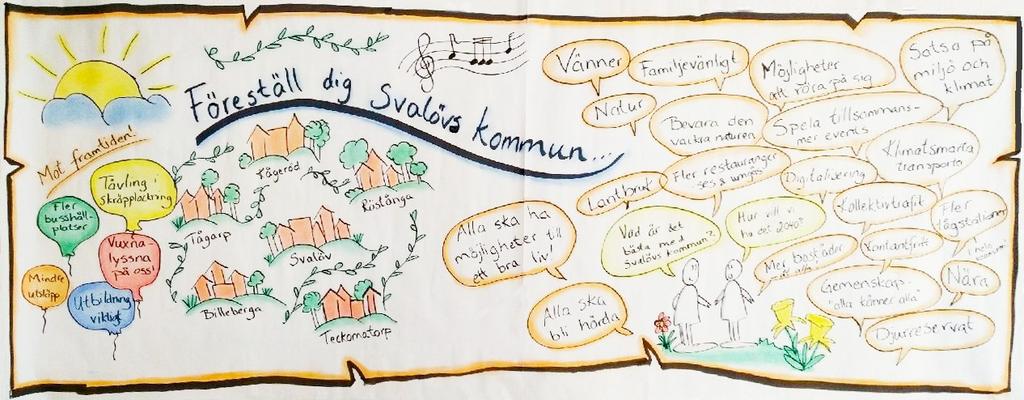 Föreställ dig Svalövs kommun...
Mot framtiden!
Tävling i
skräpplockning
Fler
busshåll-
platser
Vuxna-
lyssna
på oss!
Mindre
utsläpp
Utbildning
viktigt
Kågeröd
Röstånga
Tågarp
Svalöv
Billeberga
Teckomatorp
Alla ska ha
möjligheter till
ett bra liv!
Alla ska
bli hörda
Vänner
Familjevänligt
Möjligheter
att röra på sig
Satsa på
miljö och
klimat
Natur
Bevara den
vackra naturen
Spela tillsammans-
mer events
Klimatsmarta
transporter
Lantbruk
Fler restauranger
-ses & umgås
Digitalisering
Kollektivtrafik
Fler
tågstationer
i hela
kommunen
Vad är det
bästa med
Svalövs kommun?
Hur vill vi
ha det 2040?
Mer bostäder
Kontantfritt
Gemenskap-
"alla känner alla"
Nära
Djurreservat